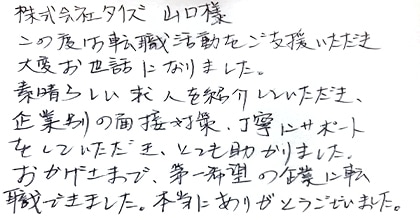 株式会社タイズ 山口様
この度は転職活動をご支援いただき
大変お世話になりました。
素晴らしい求人を紹介していただき、
企業別の面接対策、丁寧にサポート
をしていただき、とても助かりました。
おかげさまで、第一希望の企業に転
職できました。本当にありがとうございました。